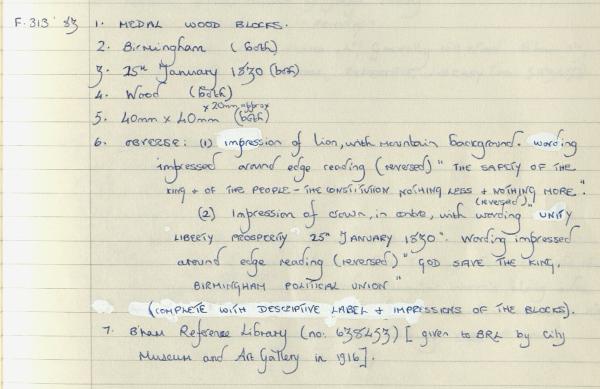 F. 313 '83 1. MEDAL WOOD BLOCKS.
2. Birmingham (both)
3. 25th January 1830 (both)
4. Wood (both)
5. 40mm x 40mm x 20mm approx (both)
6. OBVERSE: (1) impression of lion, with mountain background. wording
impressed around edge reading (reversed) "THE SAFETY OF THE
KING + OF THE PEOPLE - THE CONSTITUTION NOTHING LESS + NOTHING MORE".
(2) Impression of crown, in centre, with wording (reversed) "UNITY
LIBERTY PROSPERITY 25th JANUARY 1830". Wording impressed
around edge reading (reversed) "GOD SAVE THE KING,
BIRMINGHAM POLITICAL UNION"
(COMPLETE WITH DESCRIPTIVE LABEL + IMPRESSIONS OF THE BLOCKS).
7. B'ham Reference Library (no: 638453) [given to BRL by City
Museum and Art Gallery in 1916].